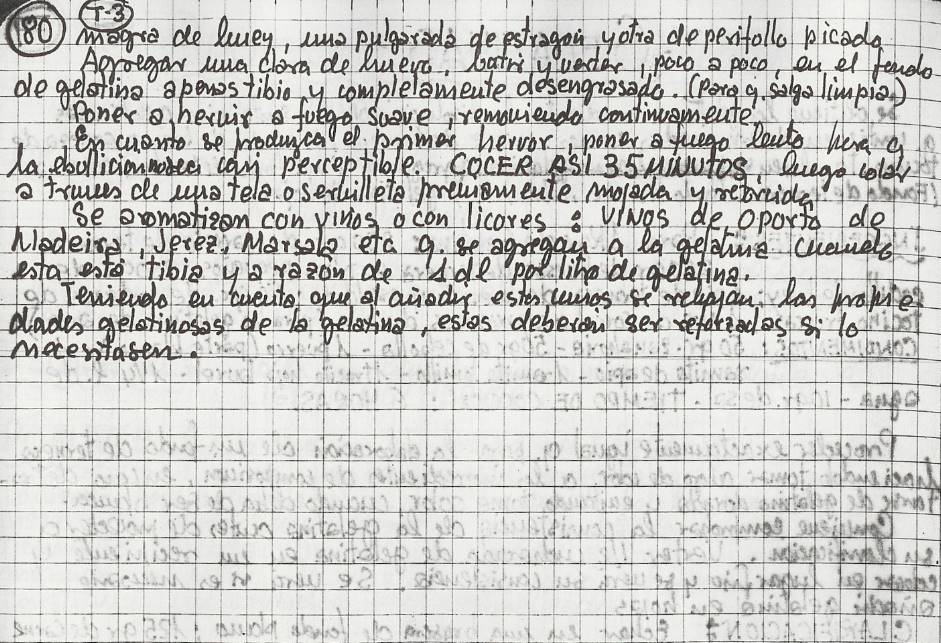 180 T-3
magra de buey, una pulgarada de estragon y otra de perifollo picado
Agregar una clara de huevo, batir y verter, poco a poco, en el fondo
de gelatina apenas tibio y completamente desengrasado. (Para q. salga limpia)
Poner a hervir a fuego suave, removiendo continuamente
En cuanto se produzca el primer hervor, poner a fuego lento para q
la ebullicion casi perceptible. COCER ASI 35 MINUTOS, luego colar
a traves de una tela o servilleta previamente mojada y retorcida
Se aromatizan con vinos o con licores: VINOS de Oporto de
Madeira, Jerez, Marsala etc q. se agregan a la gelatina cuando
esta está tibia y a razón de 1 dl por litro de gelatina.
Teniendo en cuenta que al añadir estos vinos se relajan las propie
dades gelatinosas de la gelatina, estas deberan ser reforzadas si lo
necesitasen.